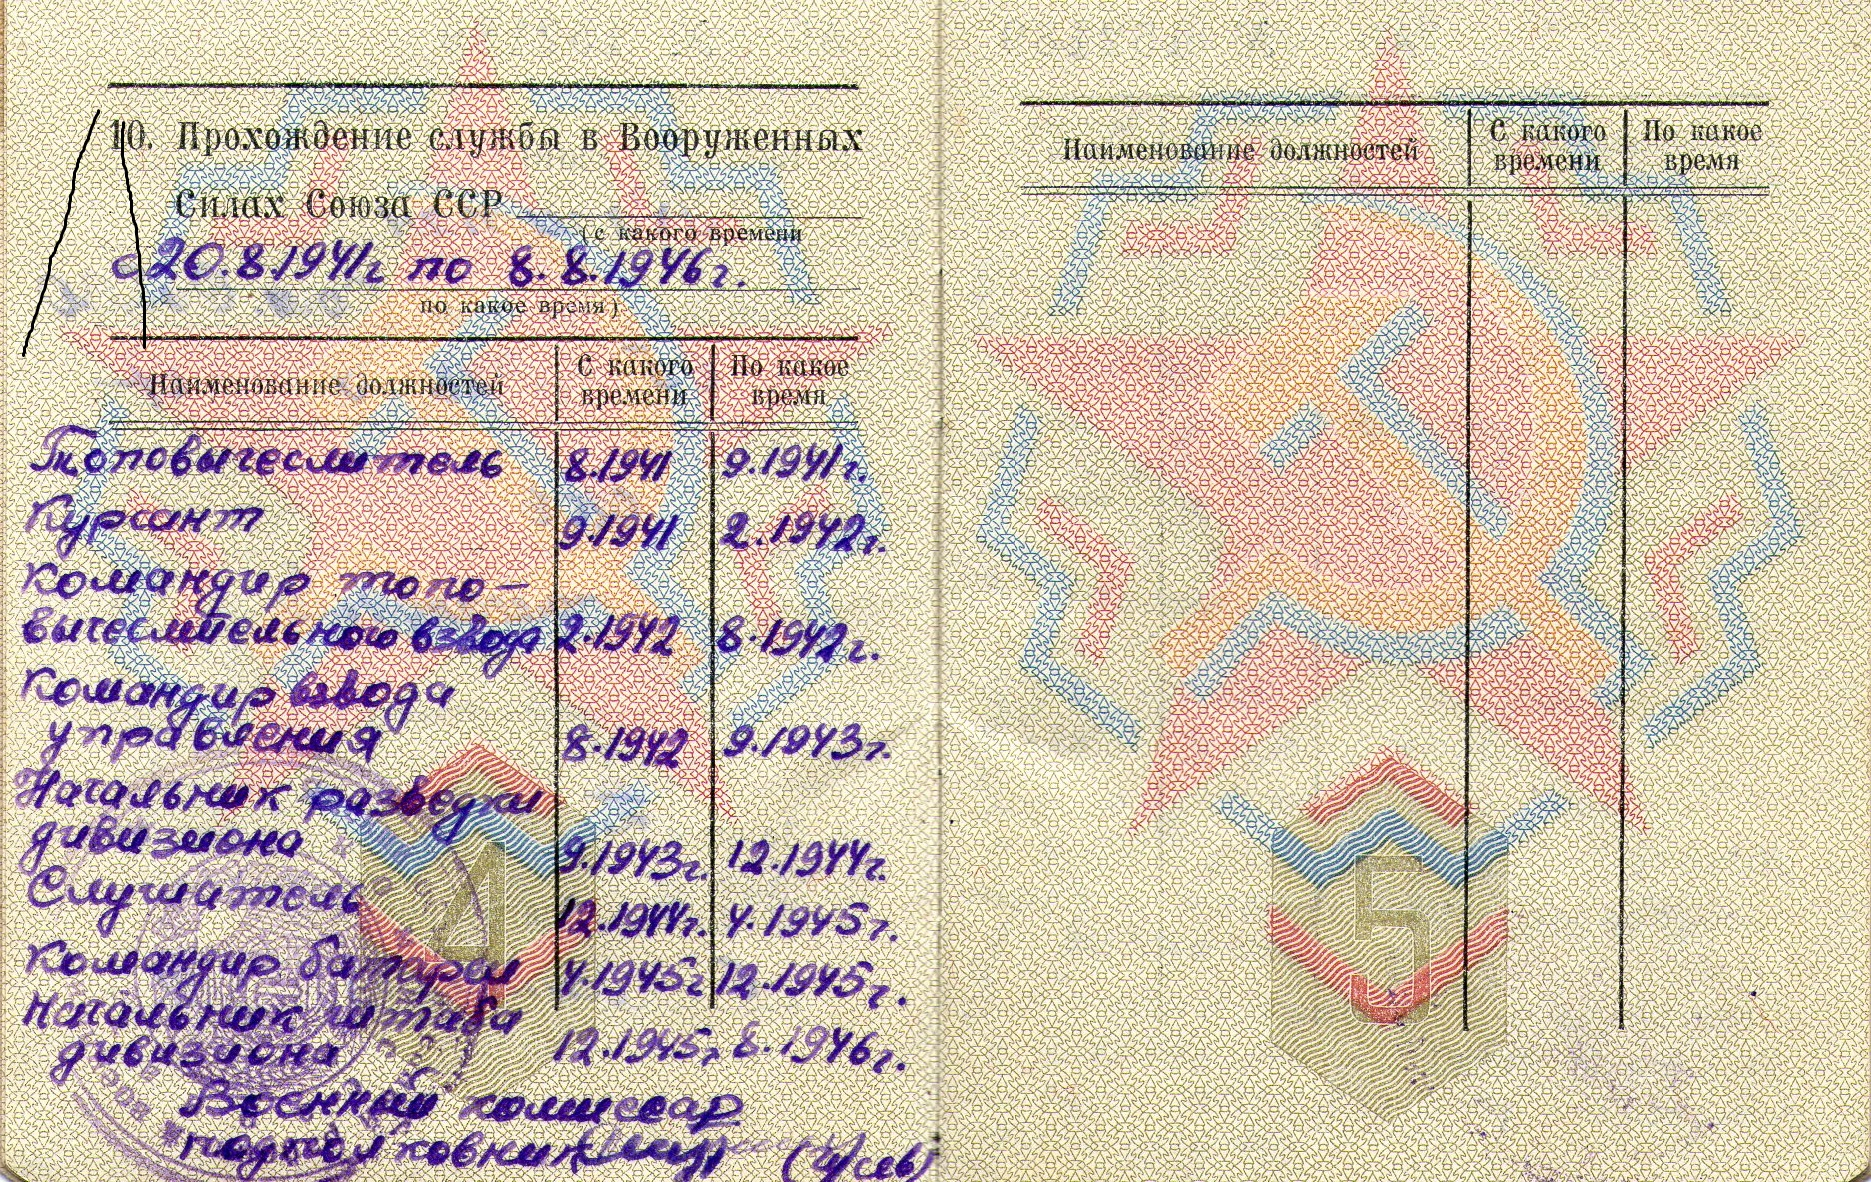 10. Прохождение службы в Вооруженных
Силах Союза ССР
(с какого времени
с 20.8.1941г по 8.8.1946г.
по какое время)
Наименование должностей С какого времени По какое время
Топовычеслитель 8.1941 9.1941г.
Курсант 9.1941 2.1942г.
Командир топо-
вычеслительного взвода 2.1942 8.1942г.
Командир взвода
управления 8.1942 9.1943г.
Начальник разведки
дивизиона 9.1943г. 12.1944г.
Слушатель 12.1944г. 4.1945г.
Командир батареи 4.1945г 12.1945г.
Начальник штаба
дивизиона 12.1945г 8.1946г.
Военный комиссар
подполковник
4
Наименование должностей С какого времени По какое время
5